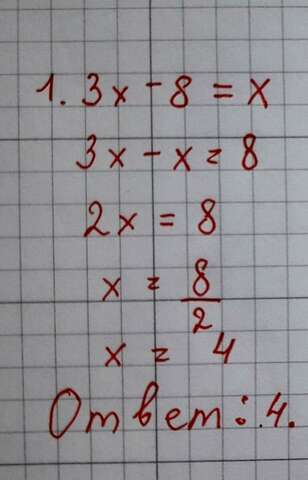 1. 3x - 8 = x
3x - x = 8
2x = 8
x = 8/2
x = 4
Ответ: 4.